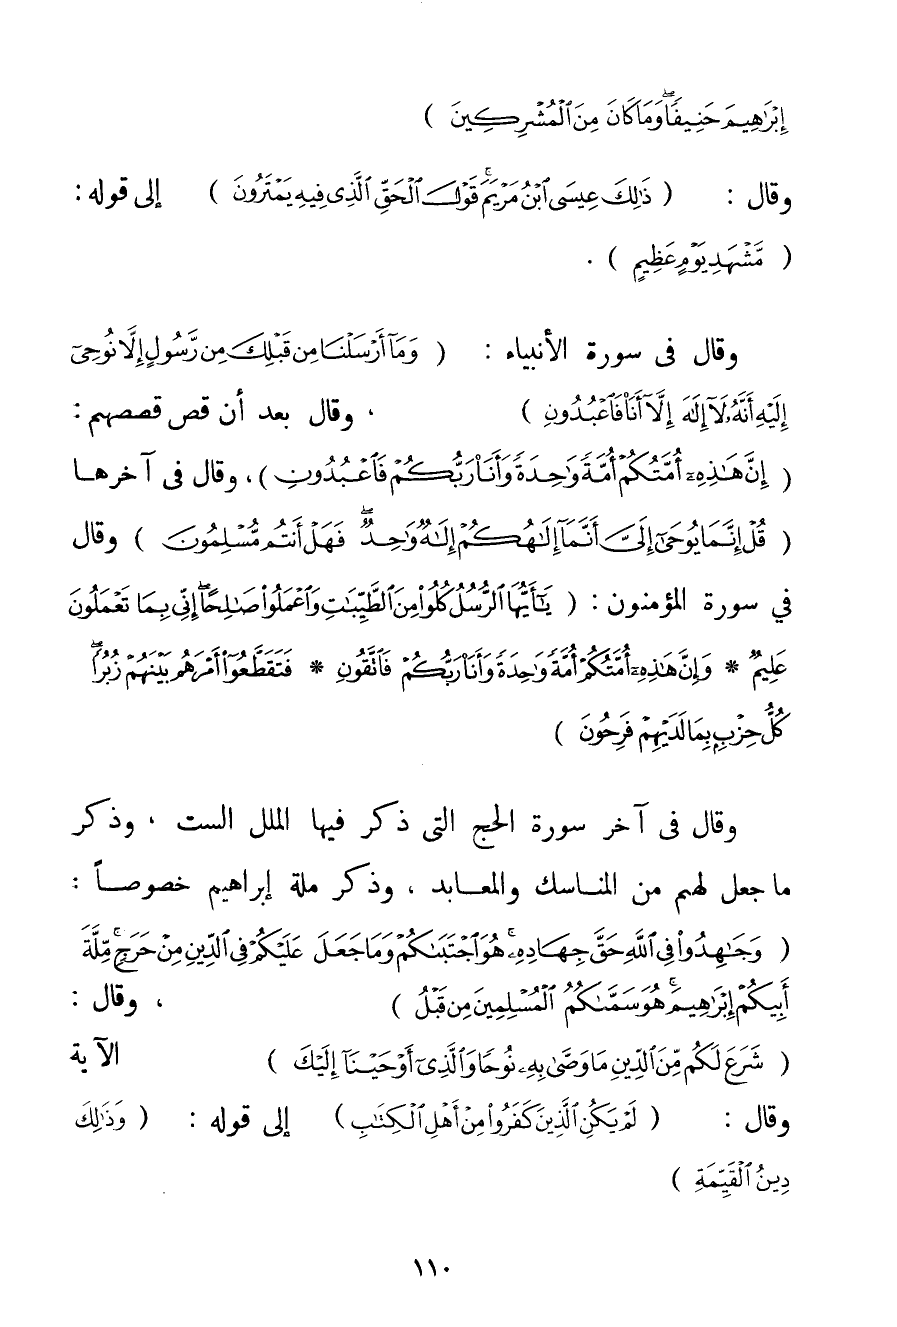 إِبْرَٰهِيمَ حَنِيفًا ۖ وَمَا كَانَ مِنَ ٱلْمُشْرِكِينَ )
وقال : ( ذَٰلِكَ عِيسَى ٱبْنُ مَرْيَمَ ۚ قَوْلَ ٱلْحَقِّ ٱلَّذِى فِيهِ يَمْتَرُونَ ) إلى قوله :
( مَّشْهَدِ يَوْمٍ عَظِيمٍ ) .
وقال فى سورة الأنبياء : ( وَمَآ أَرْسَلْنَا مِن قَبْلِكَ مِن رَّسُولٍ إِلَّا نُوحِىٓ
إِلَيْهِ أَنَّهُۥ لَآ إِلَٰهَ إِلَّآ أَنَا۠ فَٱعْبُدُونِ ) ، وقال بعد أن قص قصصهم :
( إِنَّ هَٰذِهِۦٓ أُمَّتُكُمْ أُمَّةً وَٰحِدَةً وَأَنَا۠ رَبُّكُمْ فَٱعْبُدُونِ ) ، وقال فى آخرها
( قُلْ إِنَّمَا يُوحَىٰٓ إِلَىَّ أَنَّمَآ إِلَٰهُكُمْ إِلَٰهٌ وَٰحِدٌ ۖ فَهَلْ أَنتُم مُّسْلِمُونَ ) وقال
في سورة المؤمنون : ( يَٰٓأَيُّهَا ٱلرُّسُلُ كُلُوا۟ مِنَ ٱلطَّيِّبَٰتِ وَٱعْمَلُوا۟ صَٰلِحًا ۖ إِنِّى بِمَا تَعْمَلُونَ
عَلِيمٌ * وَإِنَّ هَٰذِهِۦٓ أُمَّتُكُمْ أُمَّةً وَٰحِدَةً وَأَنَا۠ رَبُّكُمْ فَٱتَّقُونِ * فَتَقَطَّعُوٓا۟ أَمْرَهُم بَيْنَهُمْ زُبُرًا ۖ
كُلُّ حِزْبٍۭ بِمَا لَدَيْهِمْ فَرِحُونَ )
وقال فى آخر سورة الحج التى ذكر فيها الملل الست ، وذكر
ما جعل لهم من المناسك والمعابد ، وذكر ملة إبراهيم خصوصاً :
( وَجَٰهِدُوا۟ فِى ٱللَّهِ حَقَّ جِهَادِهِۦ ۚ هُوَ ٱجْتَبَىٰكُمْ وَمَا جَعَلَ عَلَيْكُمْ فِى ٱلدِّينِ مِنْ حَرَجٍ ۚ مِّلَّةَ
أَبِيكُمْ إِبْرَٰهِيمَ ۚ هُوَ سَمَّىٰكُمُ ٱلْمُسْلِمِينَ مِن قَبْلُ ) ، وقال :
( شَرَعَ لَكُم مِّنَ ٱلدِّينِ مَا وَصَّىٰ بِهِۦ نُوحًا وَٱلَّذِىٓ أَوْحَيْنَآ إِلَيْكَ ) الآية
وقال : ( لَمْ يَكُنِ ٱلَّذِينَ كَفَرُوا۟ مِنْ أَهْلِ ٱلْكِتَٰبِ ) إلى قوله : ( وَذَٰلِكَ
دِينُ ٱلْقَيِّمَةِ )
١١٠